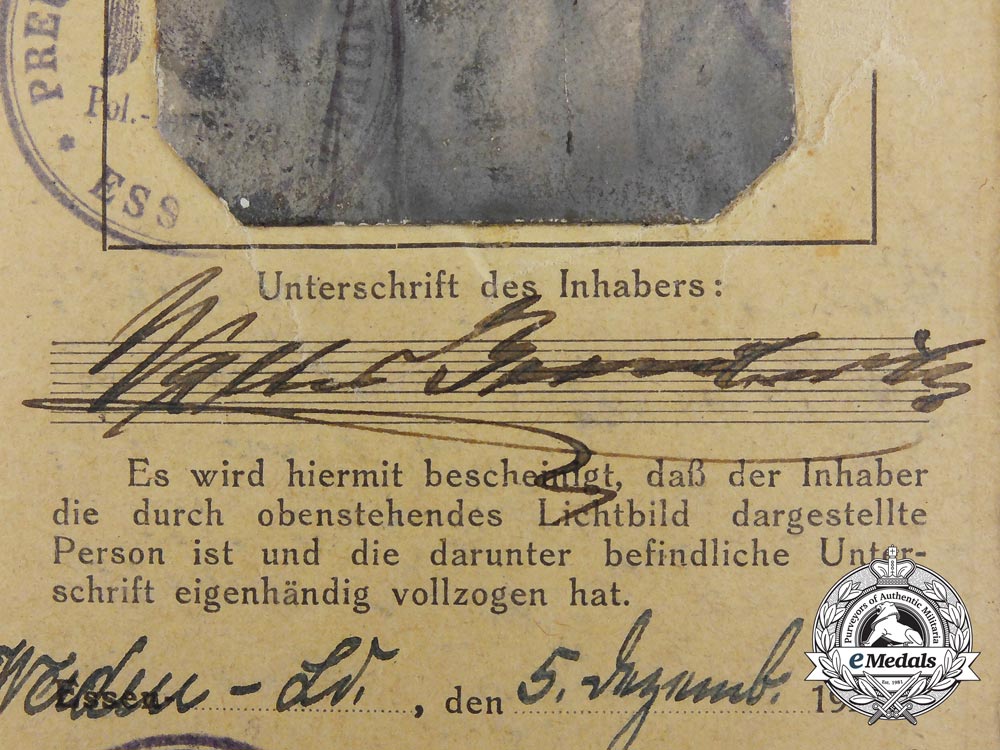 PREU
Pol.-
* ESS
Unterschrift des Inhabers:
Es wird hiermit bescheinigt, daß der Inhaber
die durch obenstehendes Lichtbild dargestellte
Person ist und die darunter befindliche Unter-
schrift eigenhändig vollzogen hat.
Essen - , den 5. Dezemb. 19
Purveyors of Authentic Militaria
eMedals
Est. 1981